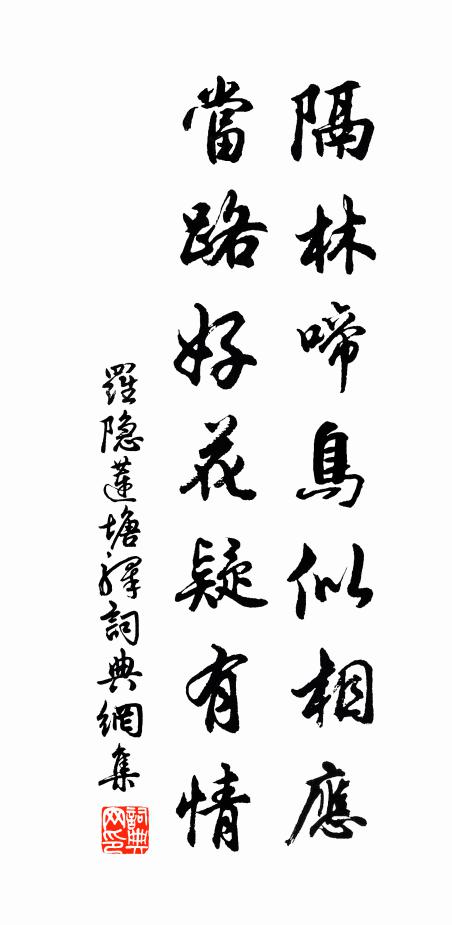 隔林啼鳥似相應
當路好花疑有情
羅隐蓮塘驛詞典網集
詞典網印